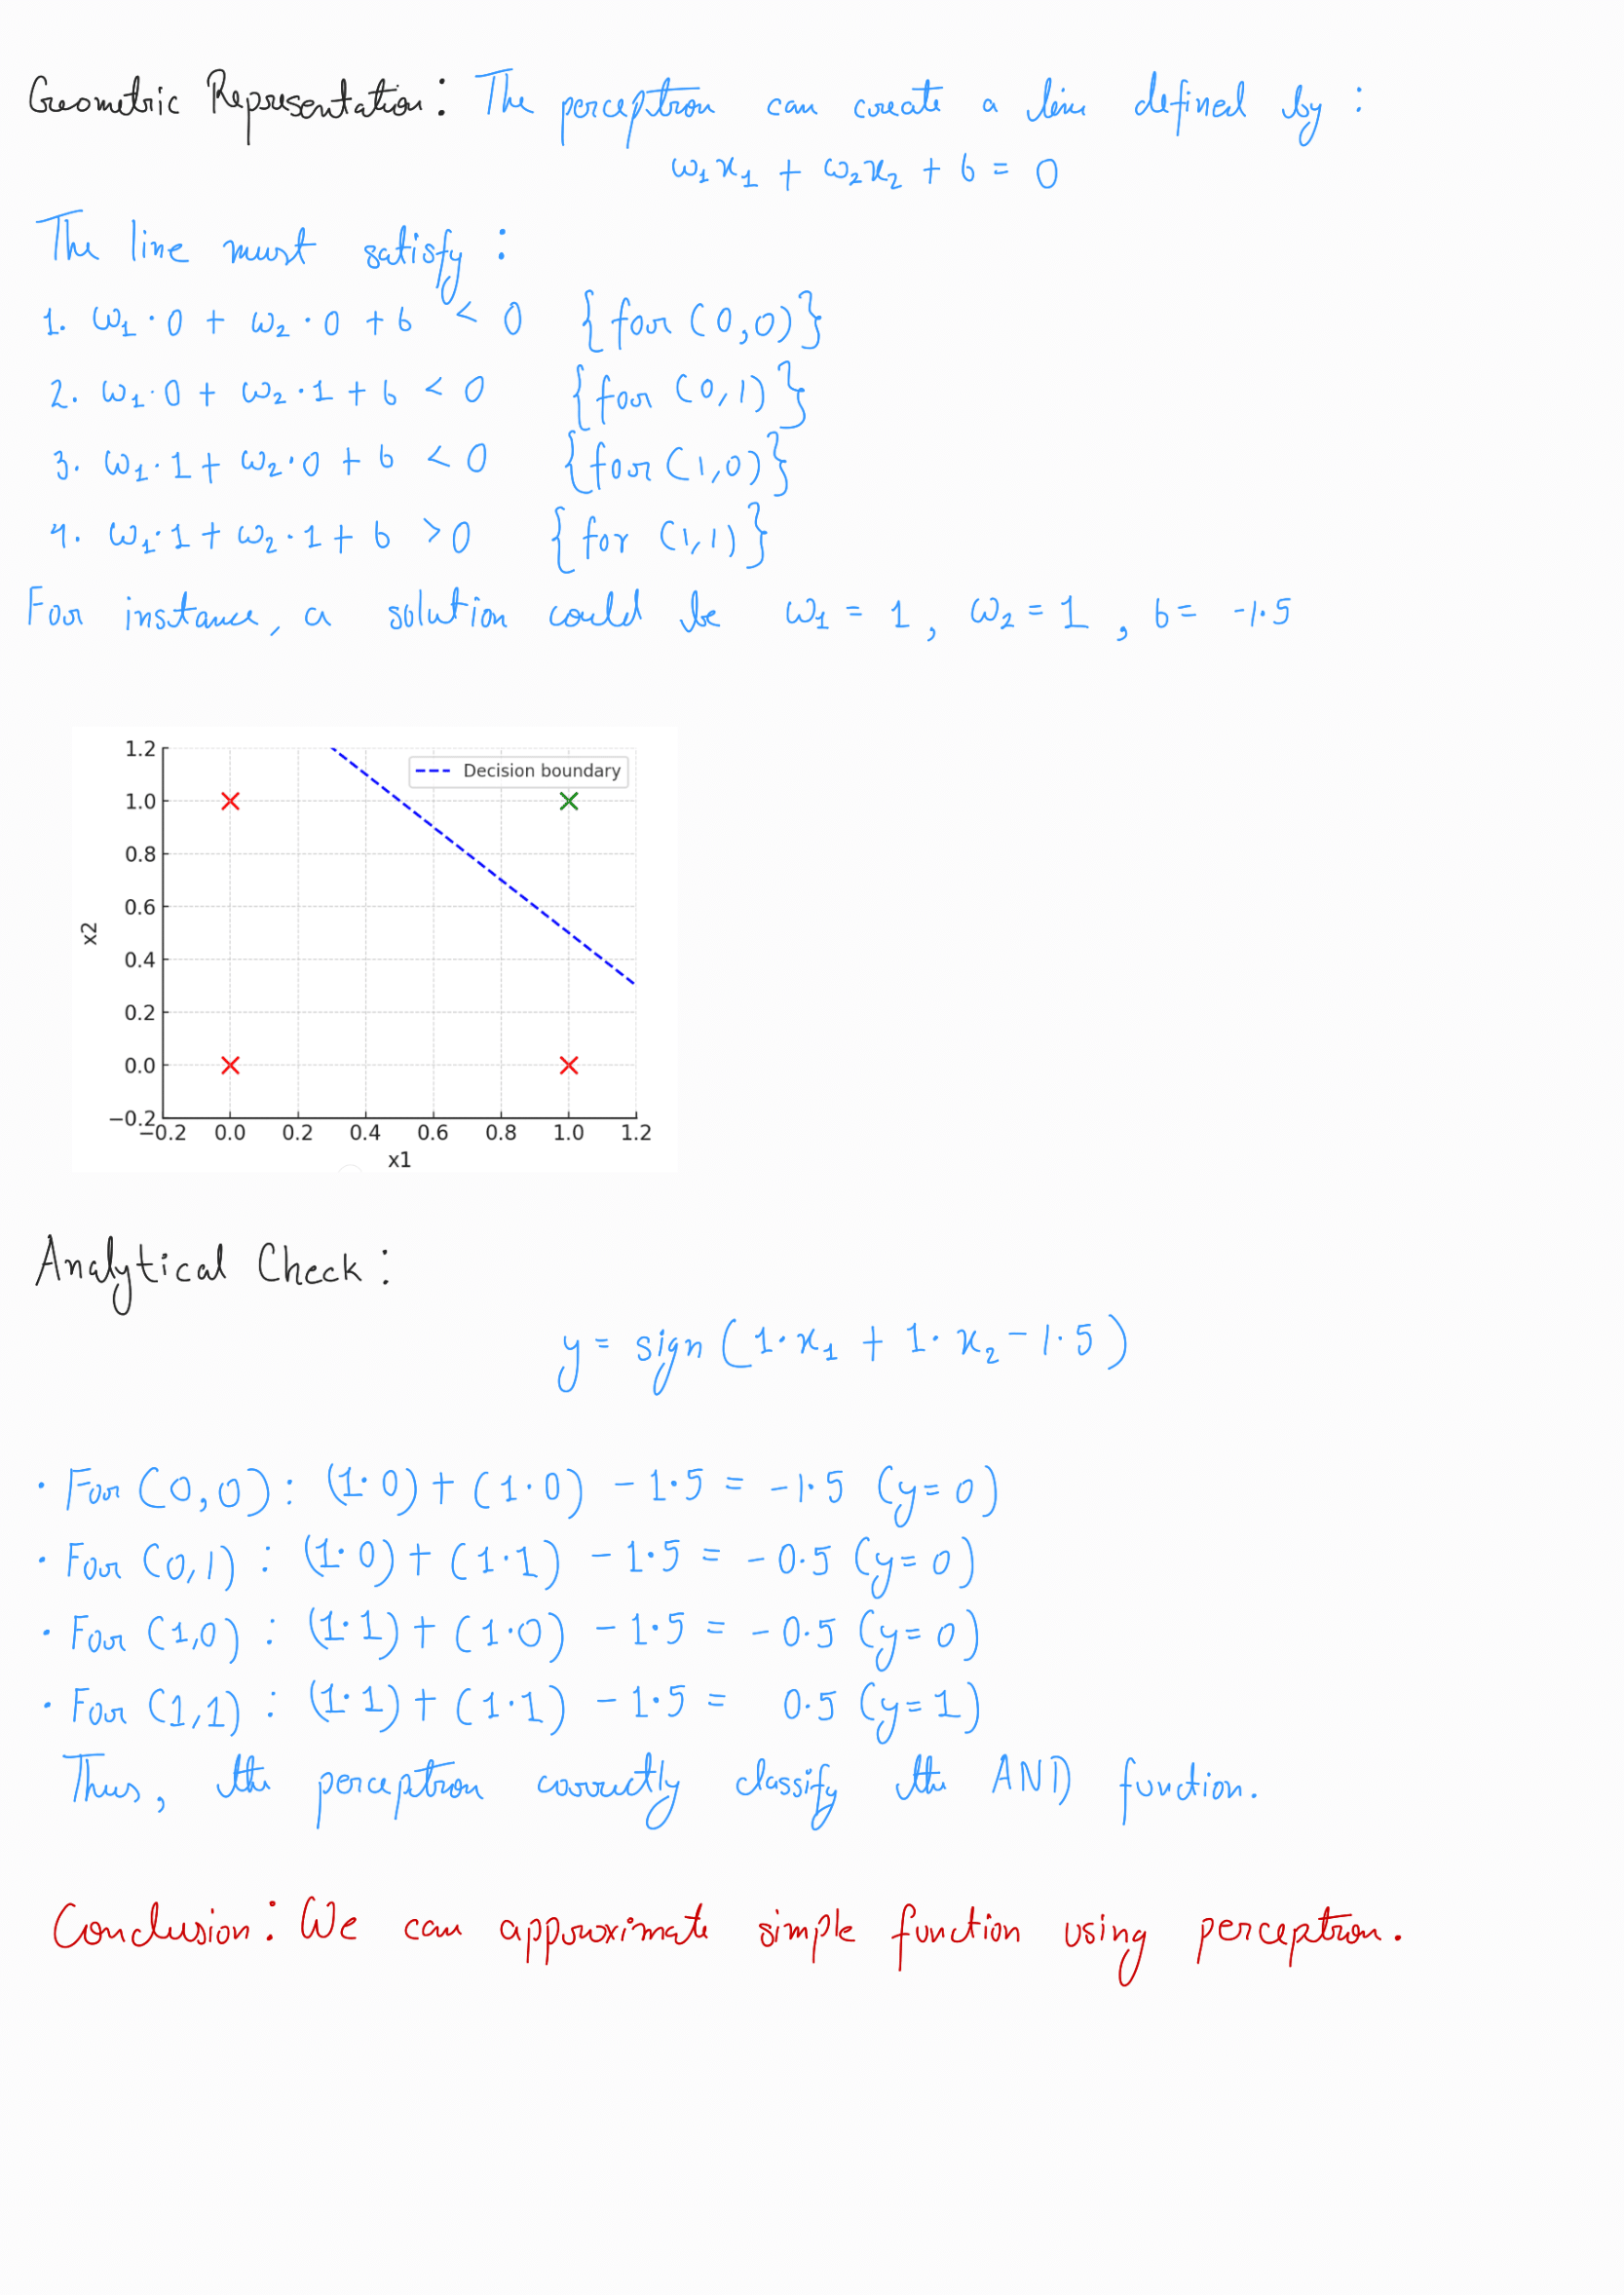 Geometric Representation: The perceptron can create a line defined by :
ω₁x₁ + ω₂x₂ + b = 0
The line must satisfy :
1. ω₁·0 + ω₂·0 + b < 0 {for (0,0)}
2. ω₁·0 + ω₂·1 + b < 0 {for (0,1)}
3. ω₁·1 + ω₂·0 + b < 0 {for (1,0)}
4. ω₁·1 + ω₂·1 + b > 0 {for (1,1)}
For instance, a solution could be ω₁ = 1, ω₂ = 1, b = -1.5
Decision boundary
1.2
1.0
0.8
0.6
0.4
0.2
0.0
−0.2
x2
−0.2 0.0 0.2 0.4 0.6 0.8 1.0 1.2
x1
Analytical Check:
y = sign (1·x₁ + 1·x₂ - 1.5)
· For (0,0): (1·0) + (1·0) - 1.5 = -1.5 (y=0)
· For (0,1) : (1·0) + (1·1) - 1.5 = -0.5 (y=0)
· For (1,0) : (1·1) + (1·0) - 1.5 = -0.5 (y=0)
· For (1,1) : (1·1) + (1·1) - 1.5 = 0.5 (y=1)
Thus, the perceptron correctly classify the AND function.
Conclusion: We can approximate simple function using perceptron.